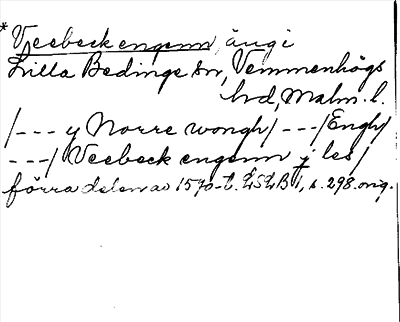 * Veebeck engenn, äng i
Lilla Bedinge sn, Vemmenhögs
hd, Malm. l.
/--- y Norre wongh/ ---/Engh/
---/ Veebeck engenn j les/
förra delen av 1570-t. LSLB 1, s. 298. orig.